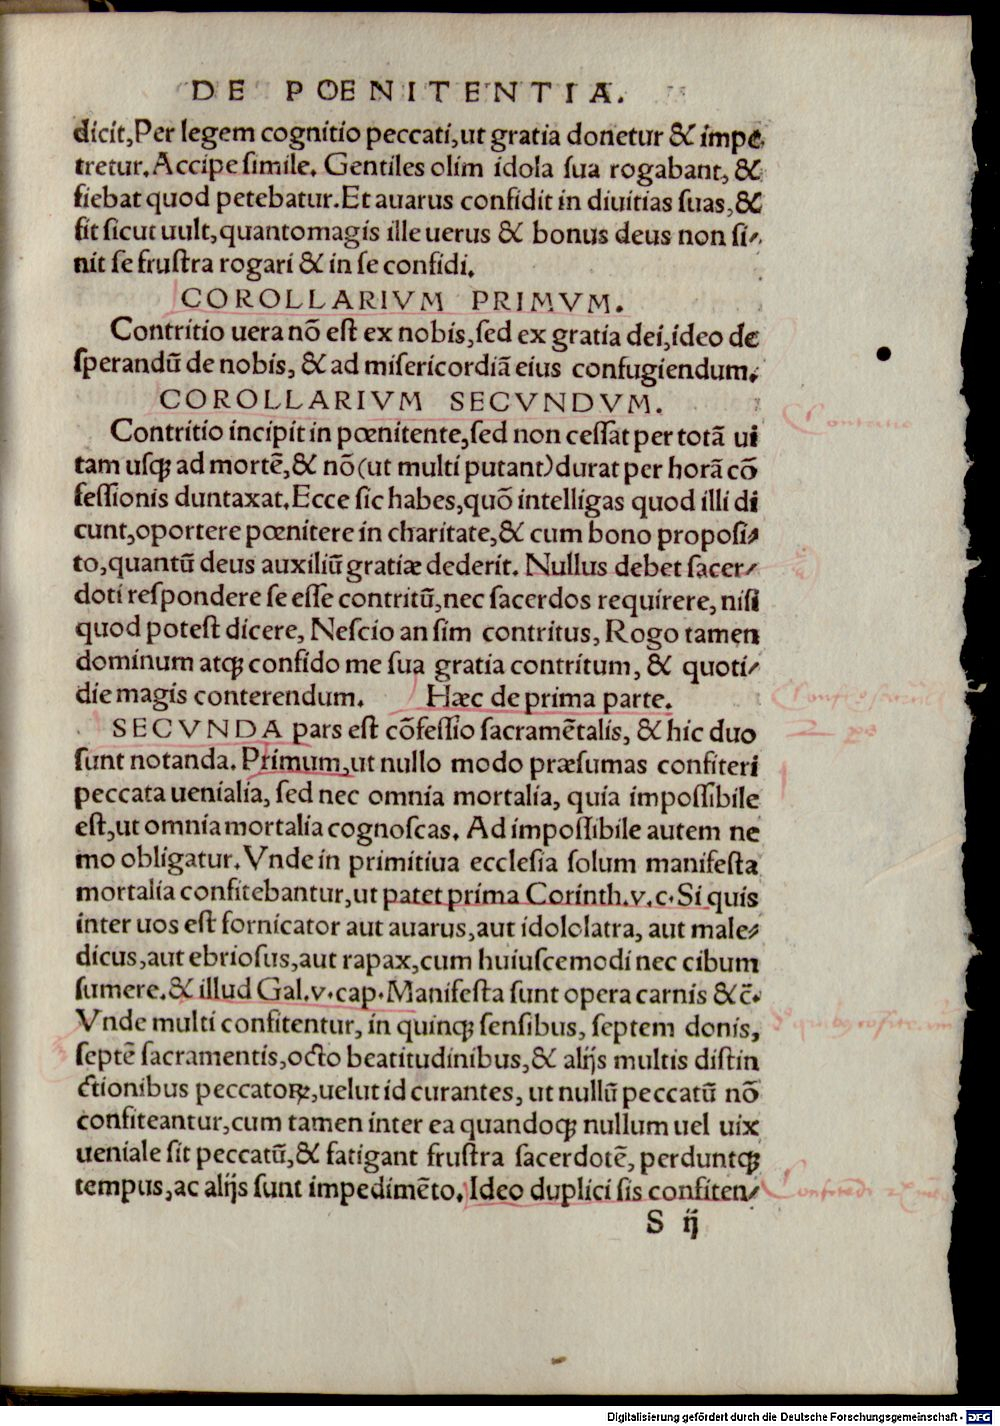 DE POENITENTIA.
dicit,Per legem cognitio peccati,ut gratia donetur & impe
tretur.Accipe simile. Gentiles olim idola sua rogabant, &
fiebat quod petebatur.Et auarus confidit in diuitias suas,&
fit sicut uult,quantomagis ille uerus & bonus deus non si-
nit se frustra rogari & in se confidi.
COROLLARIVM PRIMVM.
Contritio uera nō est ex nobis,sed ex gratia dei,ideo de
sperandū de nobis, & ad misericordiā eius confugiendum.
COROLLARIVM SECVNDVM.
Contritio incipit in pœnitente,sed non cessat per totā ui
tam usq; ad mortē,& nō(ut multi putant)durat per horā cō
fessionis duntaxat.Ecce sic habes,quō intelligas quod illi di
cunt,oportere pœnitere in charitate,& cum bono proposi-
to,quantū deus auxiliū gratiæ dederit. Nullus debet sacer-
doti respondere se esse contritū,nec sacerdos requirere, nisi
quod potest dicere, Nescio an sim contritus, Rogo tamen
dominum atq; confido me sua gratia contritum, & quoti-
die magis conterendum. Hæc de prima parte.
SECVNDA pars est cōfessio sacramētalis, & hic duo
sunt notanda. Primum,ut nullo modo præsumas confiteri
peccata uenialia, sed nec omnia mortalia, quia impossibile
est,ut omnia mortalia cognoscas. Ad impossibile autem ne
mo obligatur. Vnde in primitiua ecclesia solum manifesta
mortalia confitebantur,ut patet prima Corinth.v.c.Si quis
inter uos est fornicator aut auarus,aut idololatra, aut male-
dicus,aut ebriosus,aut rapax,cum huiuscemodi nec cibum
sumere.& illud Gal.v.cap.Manifesta sunt opera carnis &c̄.
Vnde multi confitentur, in quinq; sensibus, septem donis,
septē sacramentis,octo beatitudinibus,& alijs multis distin
ctionibus peccatoꝝ,uelut id curantes, ut nullū peccatū nō
confiteantur,cum tamen inter ea quandoq; nullum uel uix
ueniale sit peccatū,& fatigant frustra sacerdotē, perduntq;
tempus,ac alijs sunt impedimēto. Ideo duplici sis confiten-
S ij
Contritio
Digitalisierung gefördert durch die Deutsche Forschungsgemeinschaft - DFG